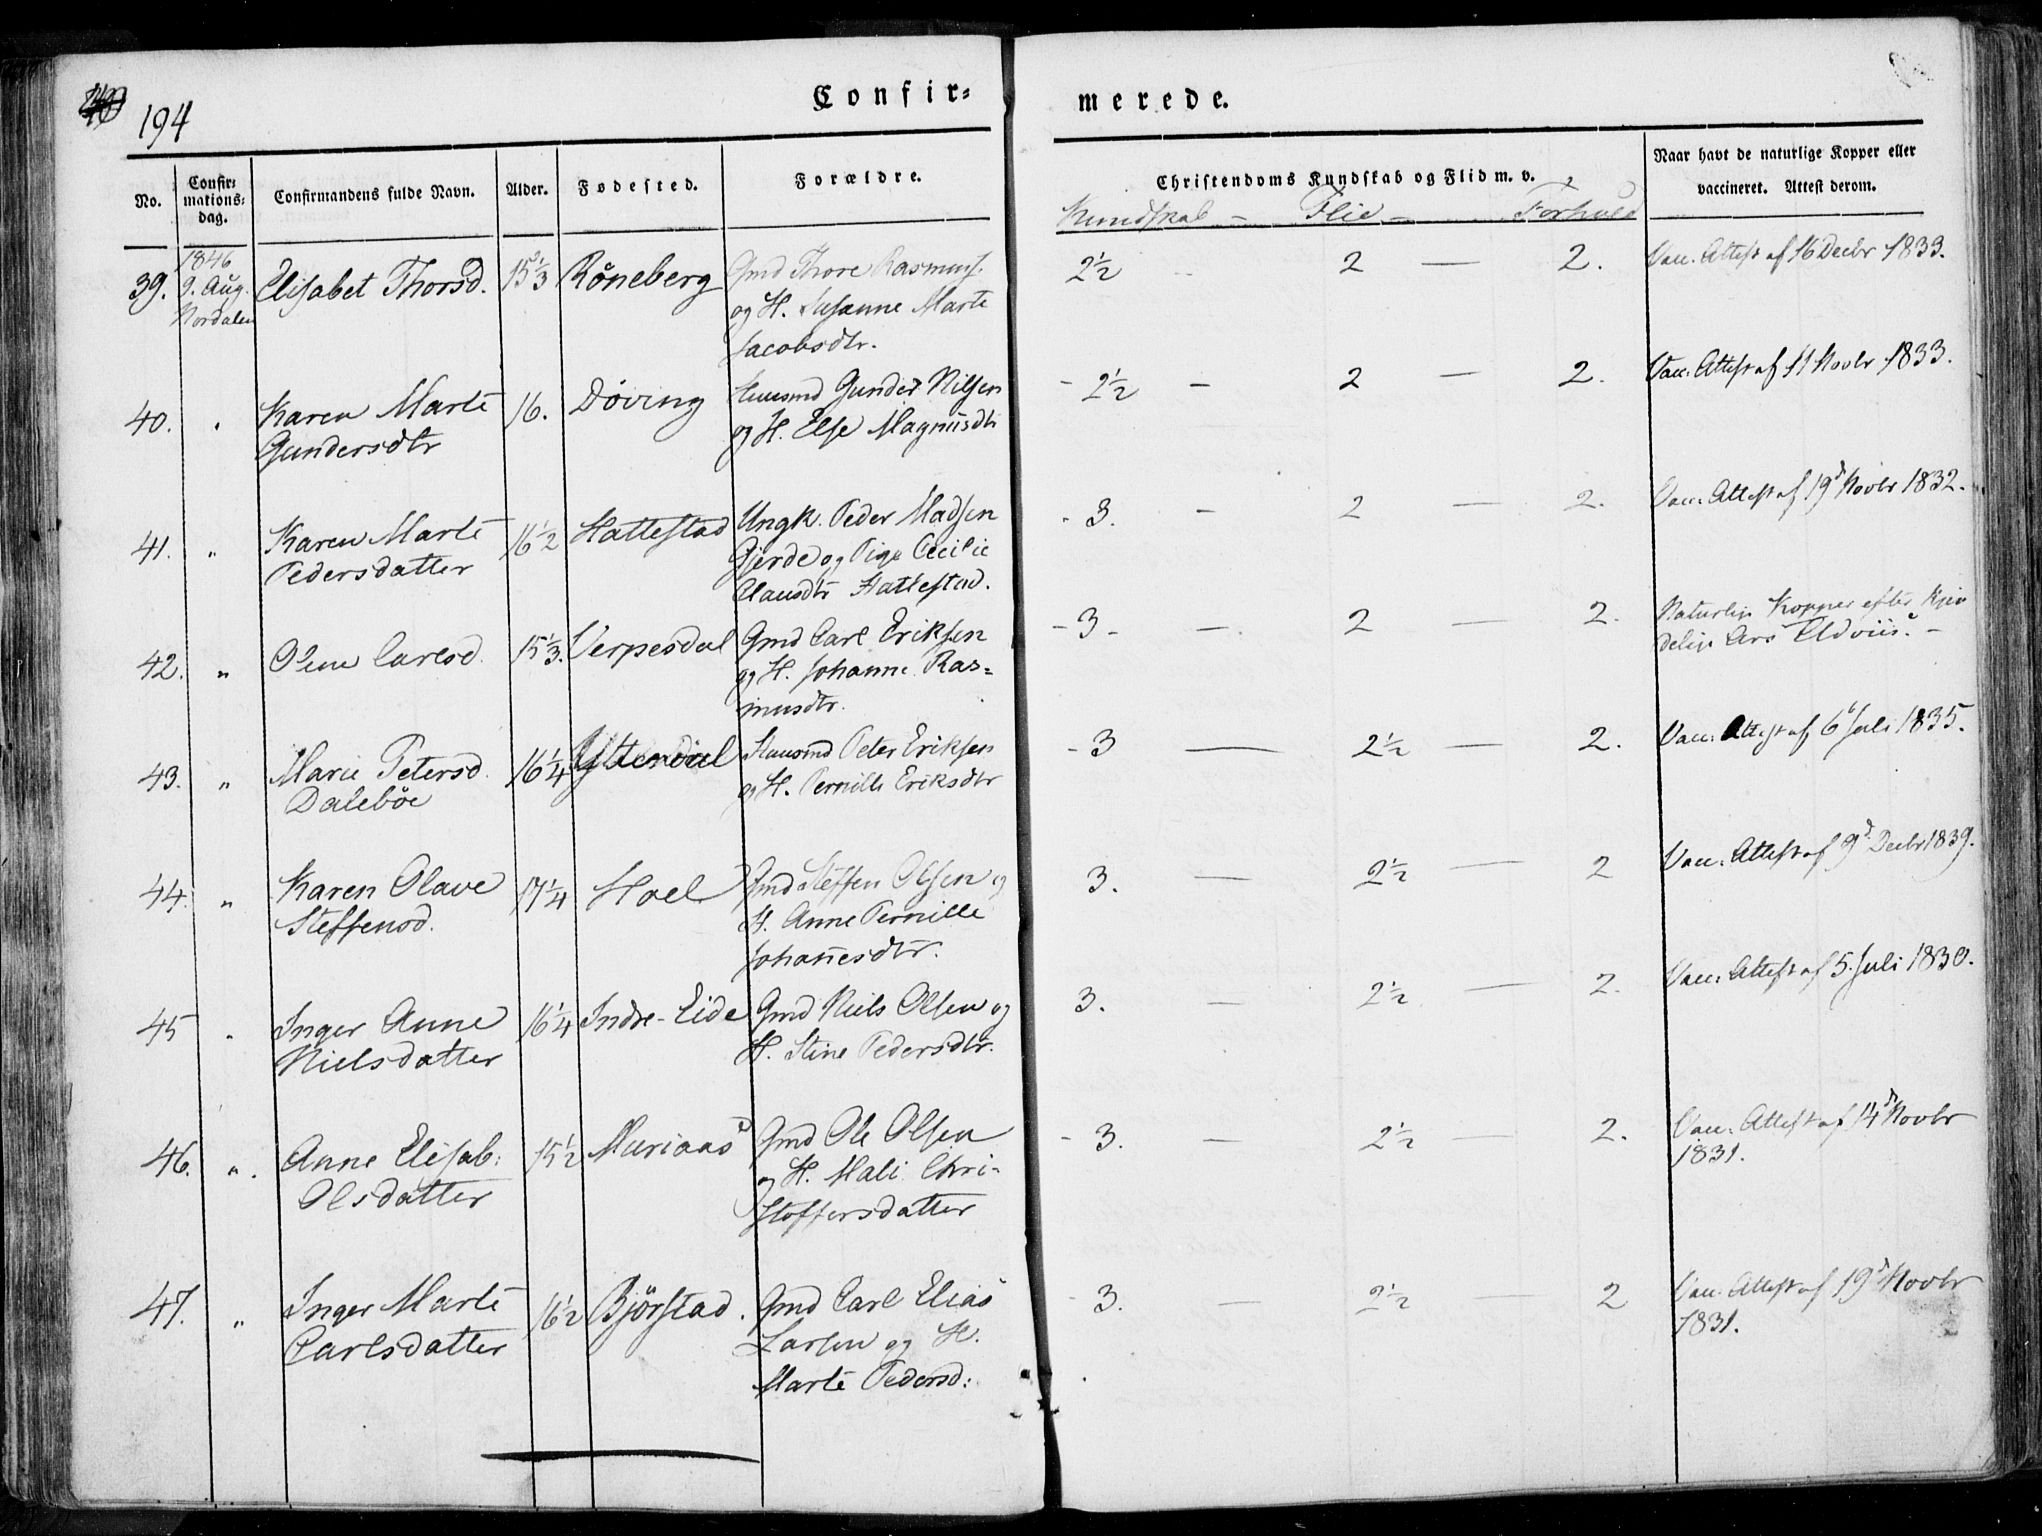 194
Confir=
merede.
No.
Confir=
mations=
dag.
Confirmandens fulde Navn.
Alder.
Fødested.
Forældre.
Christendoms Kundskab og Flid m. v.
Kundskab – Flid – Forhold
Naar havt de naturlige Kopper eller
vaccineret. Attest derom.
39. 1846 9. Aug. Nordalen
Elisabet Thorsd. 15 1/3 Röneberg
Gmd Thore Rasmuss.
og H. Susanne Marte
Jacobsdtr.
2½ 2 — 2. Vacc. Attest af 16 Decbr 1833.
40. " Karen Marte
Gundersdtr
16. Döving
Huusmd Gunder Nilsen
og H. Else Magnusdtr
- 2½ - 2 — 2. Vacc. Attest af 11 Novbr 1833.
41. " Karen Marte
Pedersdatter
16½ Hattestad
Ungk. Peder Madsen
Gjerde og Pige Cecilie
Clausdtr Hattestad.
- 3. - 2 — 2. Vacc. Attest af 19d Novbr 1832.
42. " Oline Carlsd. 15 1/3. Verpesdal
Gmd Carl Eriksen
og H. Johanne Ras=
musdtr.
- 3 - — 2 — 2. Naturlige Kopper efter Kjen
delige Ars Udviis. –
43. " Marie Petersd.
Dalebøe
16¼ Ytterdal
Huusmd Peter Eriksen
og H. Pernille Eriksdtr
- 3 — 2½ — 2. Vacc. Attest af 6 Juli 1835.
44. " Karen Olave
Steffensd.
17¼ Hoel
Gmd Steffen Olsen og
H. Anne Pernille
Johannesdtr.
3. — 2½ — 2 Vacc. Attest af 9d Decbr 1839.
45 " Inger Anne
Nielsdatter
16¼ Indre-Eide
Gmd Niels Olsen og
H. Stine Pedersdtr.
3. — 2½ — 2. Vacc. Attest af 5. Juli 1830.
46. " Anne Elisab:
Olsdatter
15½ Muriaas
Gmd Ole Olsen
og H. Mali Chri-
stoffersdatter
- 3. — 2½ — 2. Vacc. Attest af 14d Novbr
1831.
47. " Inger Marte
Carlsdatter
16½ Bjørstad.
Gmd Carl Elias
Larsen og H.
Marte Pedersd:
- 3. — 2½ — 2 Vacc. Attest af 19d Novbr
1831.